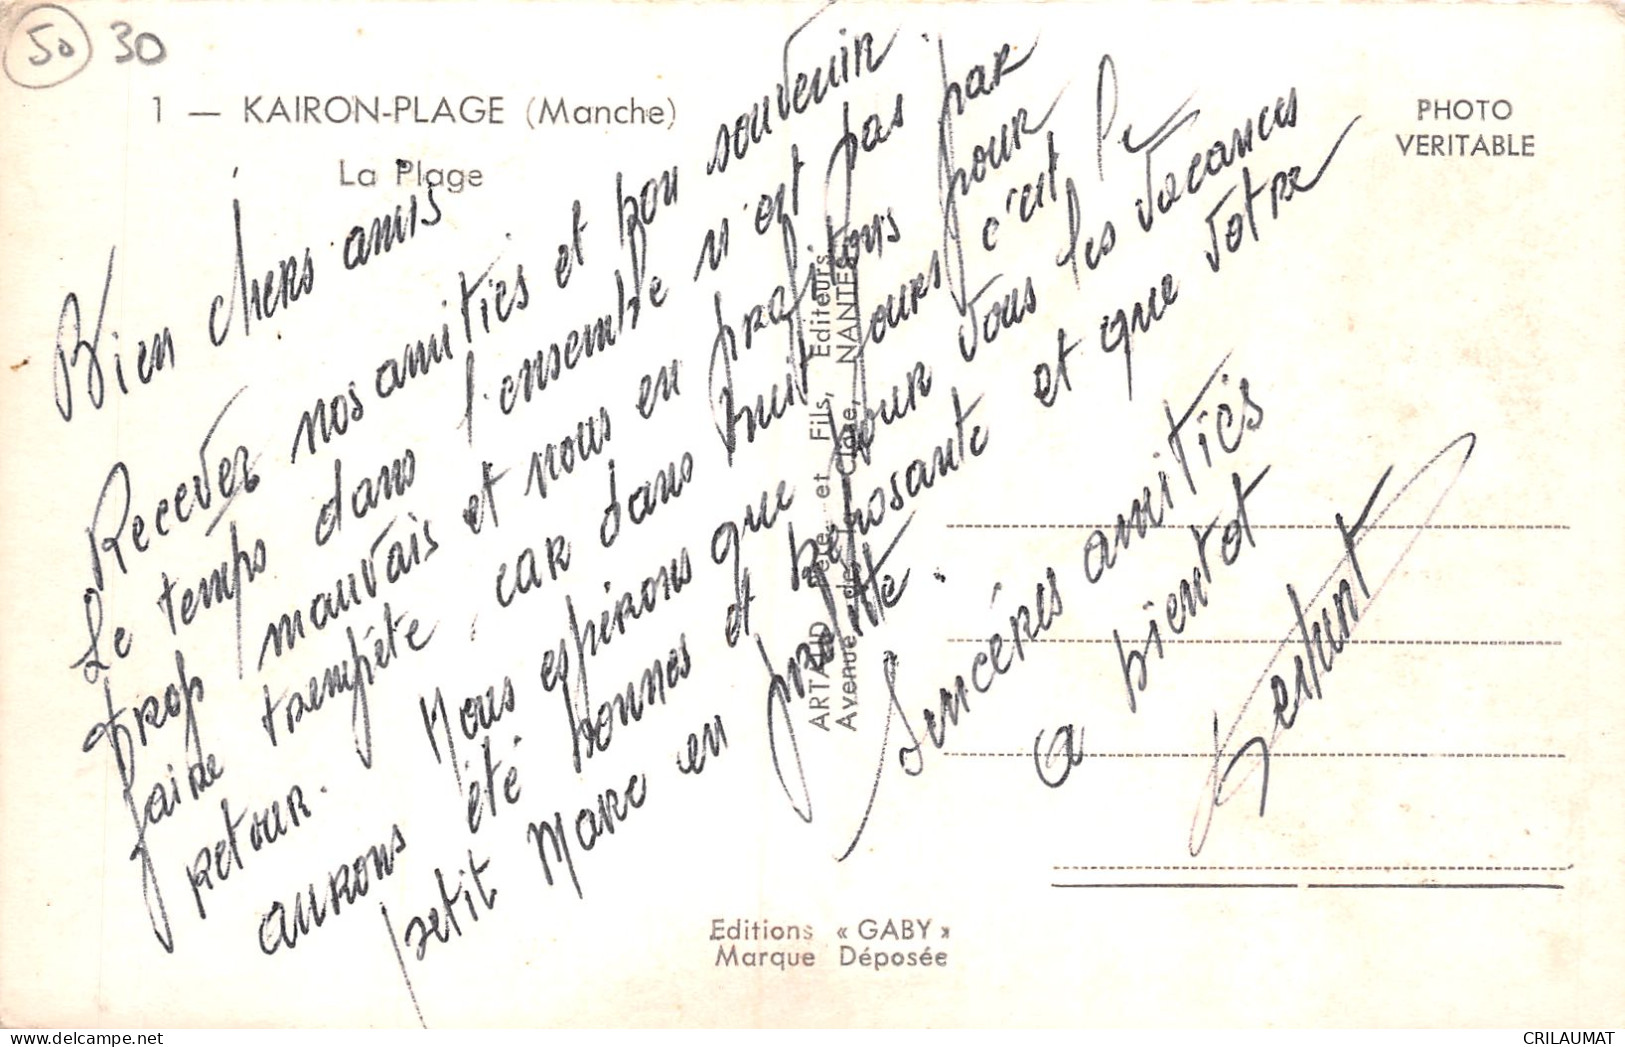 50 30
1 — KAIRON-PLAGE (Manche)
La Plage
PHOTO
VERITABLE
Bien chers amis
Recevez nos amitiés et bon souvenir
Le temps dans l'ensemble n'est pas par
trop mauvais et nous en profitons pour
faire trempête, car dans huit jours c'est le
retour. Nous espérons que pour vous les vacances
aurons été bonnes et reposante et que votre
petit Marc en profite.
Sincéres amitiés
a bientot
ARTAUD Père et Fils, Editeurs
Avenue de la Close, NANTES
Editions « GABY »
Marque Déposée
CRILAUMAT